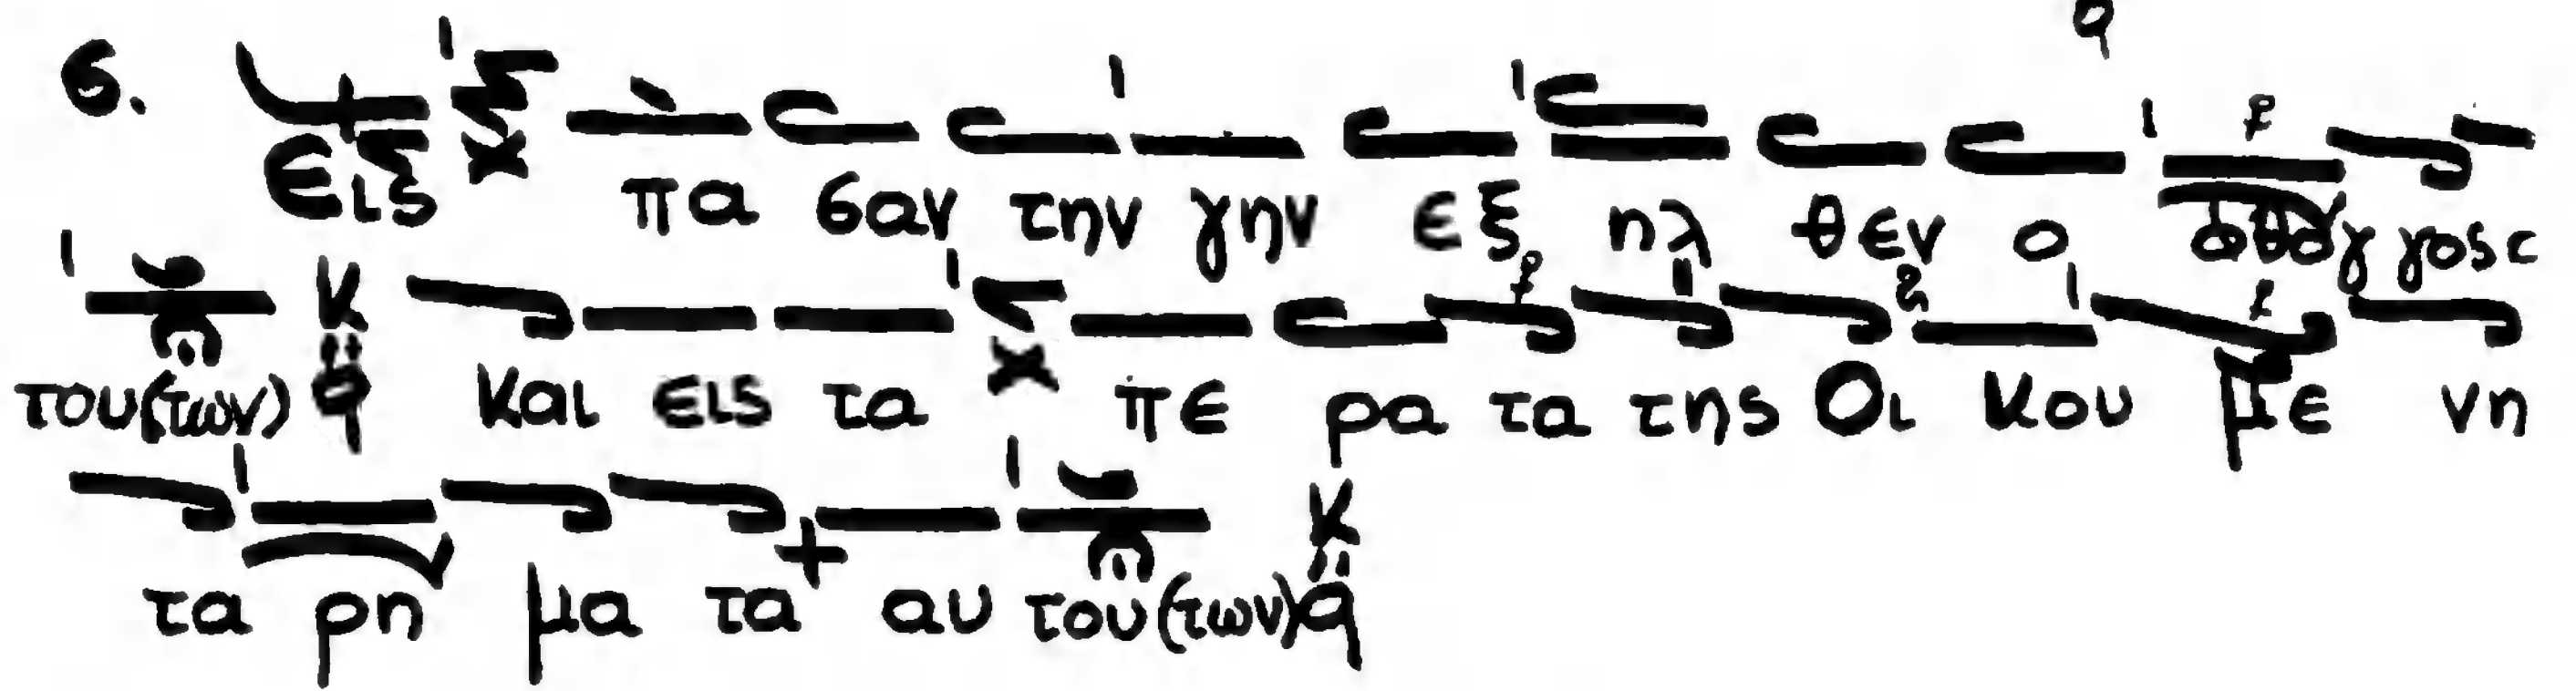 6. εις πα σαν την γην εξ ηλ θεν ο φθογ γος
του(των) και εις τα πε ρα τα της Οι κου με νη
τα ρη μα τα αυ του(των)